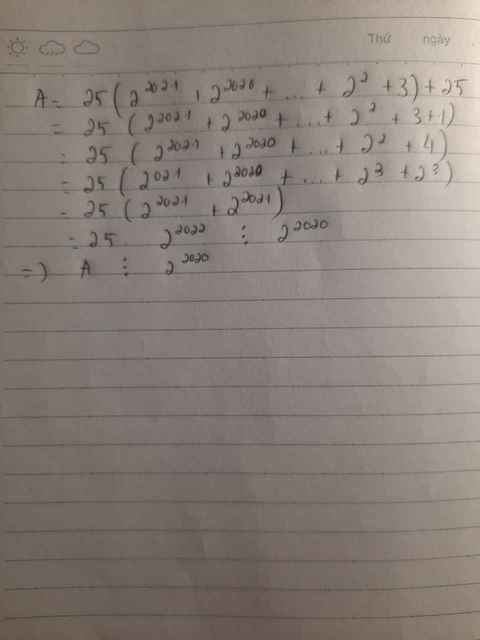 Thứ ngày
A = 25 ( 2^2021 + 2^2020 + ... + 2^2 + 3) + 25
= 25 ( 2^2021 + 2^2020 + ... + 2^2 + 3 + 1)
= 25 ( 2^2021 + 2^2020 + ... + 2^2 + 4)
= 25 ( 2^021 + 2^2020 + ... + 2^3 + 2^3)
= 25 ( 2^2021 + 2^2021)
= 25 2^2022 ⋮ 2^2020
=) A ⋮ 2^2020